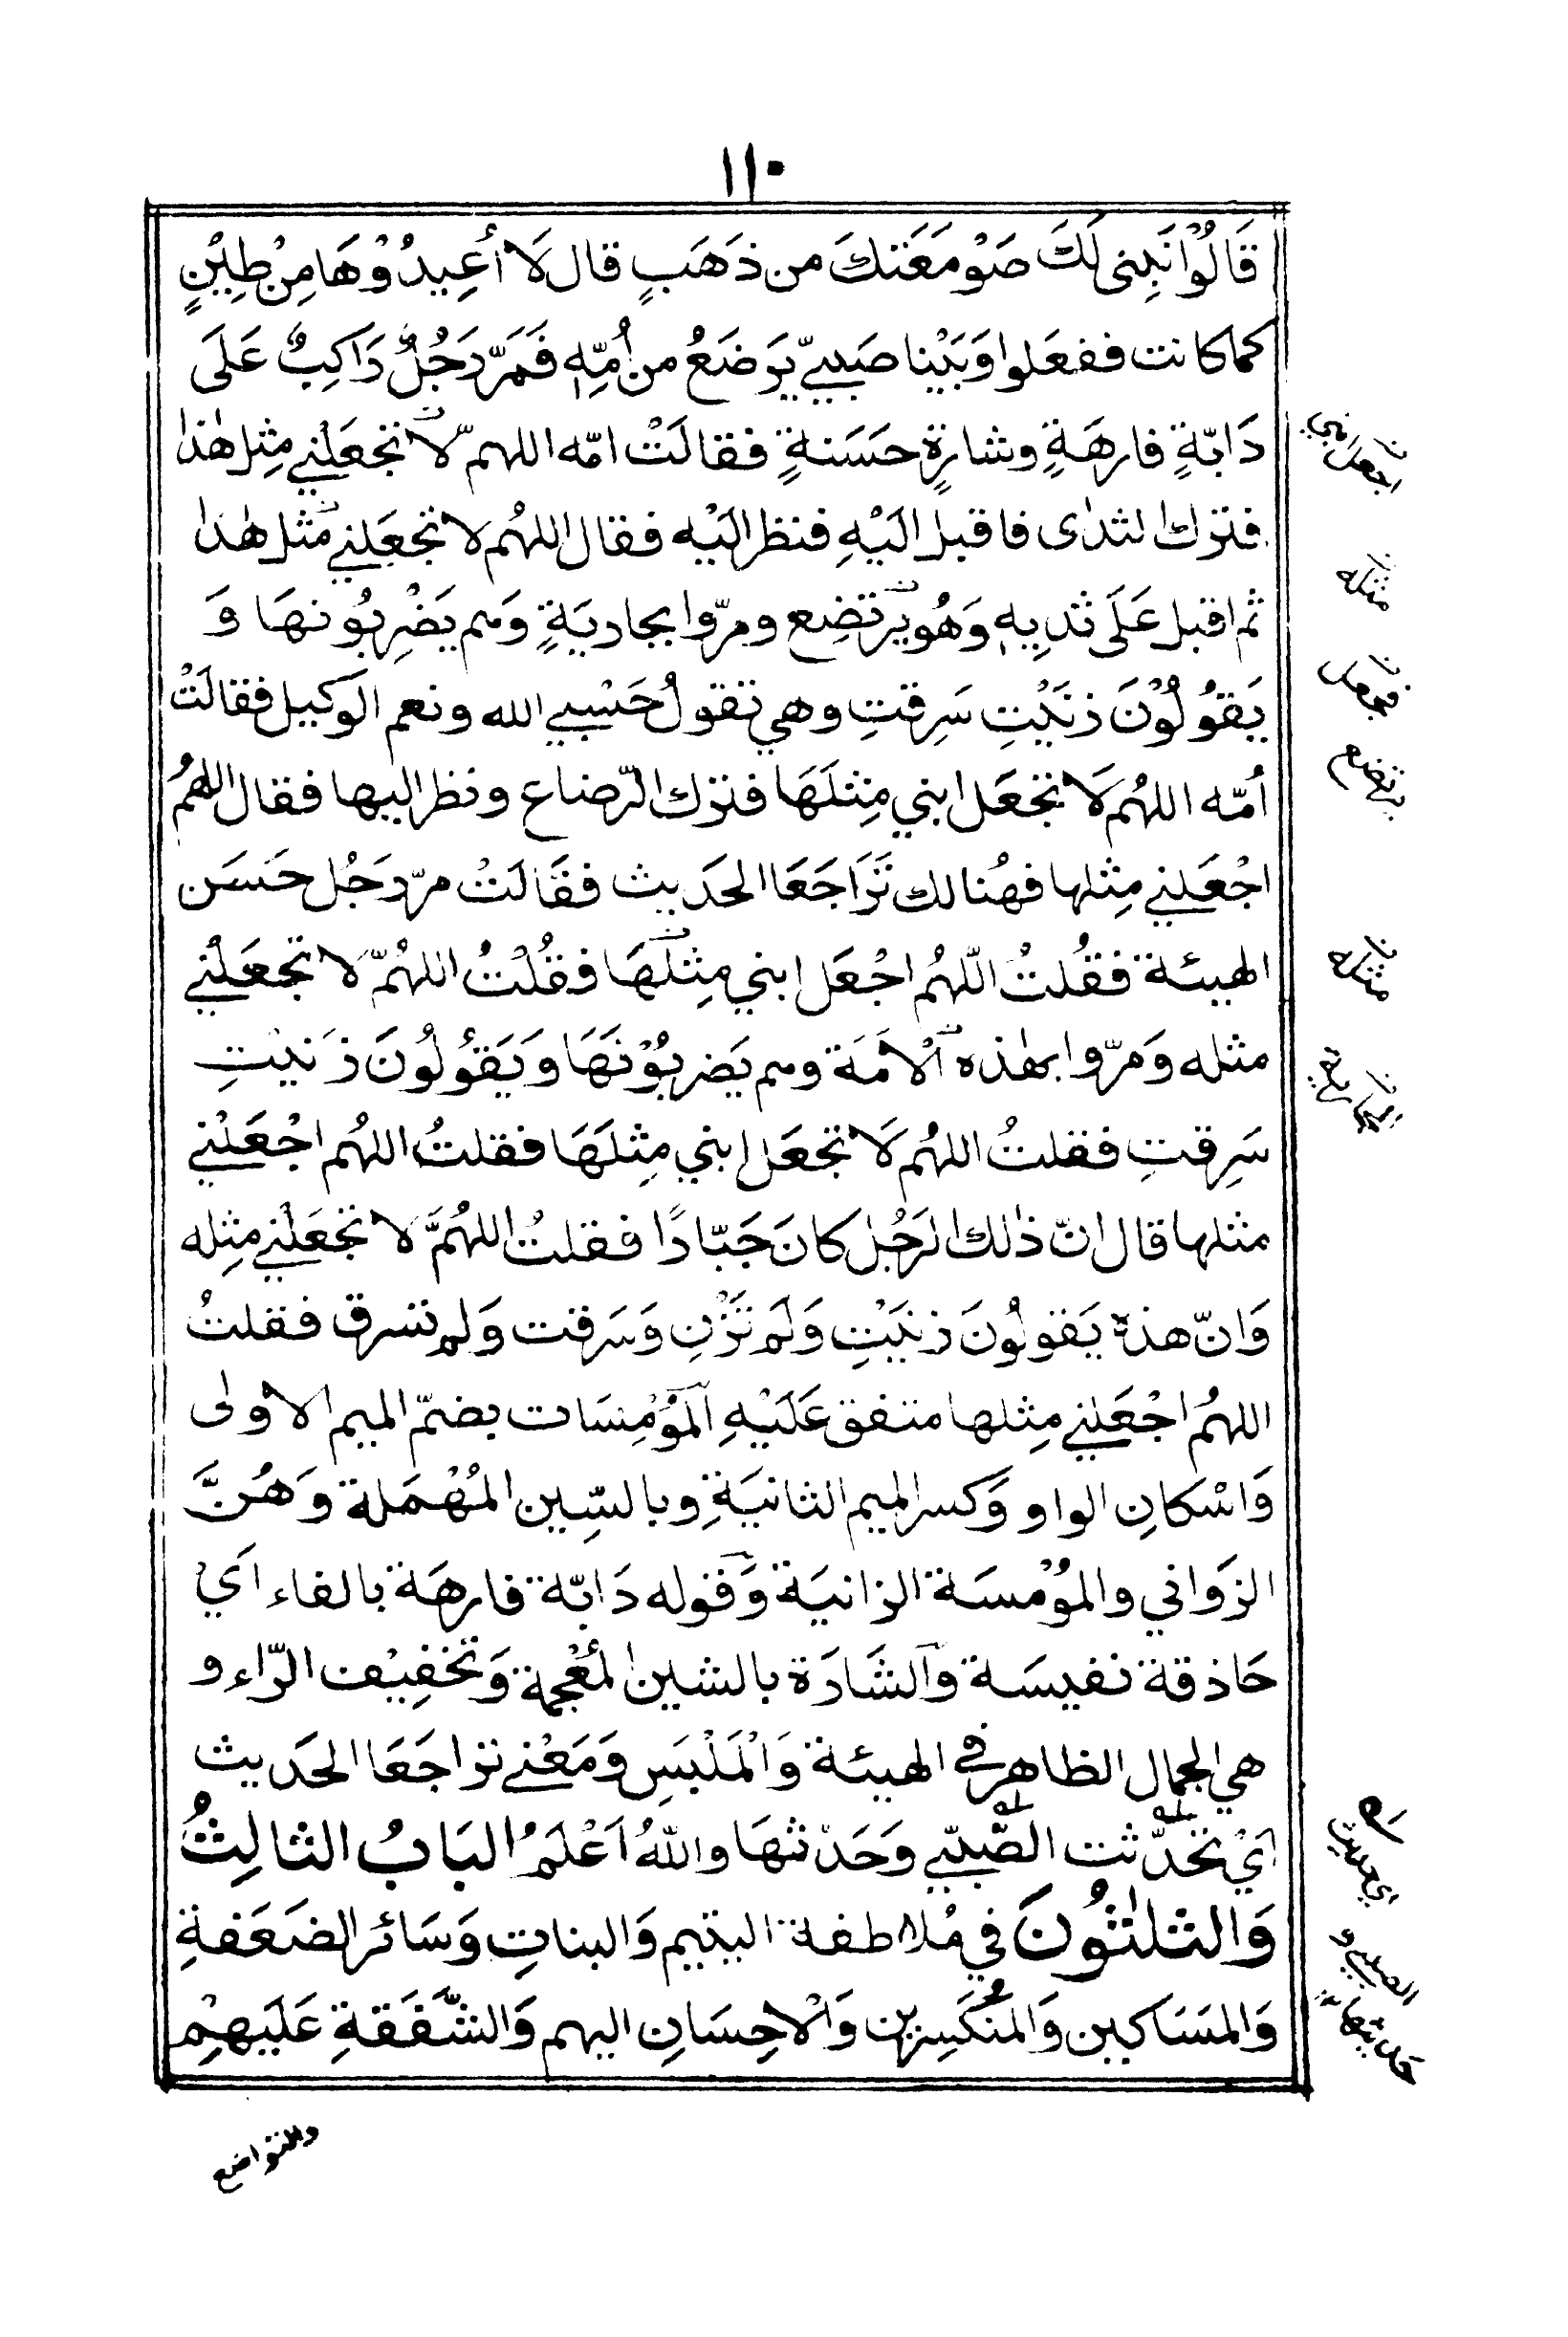 ١١٠
قَالُوْا نَبْنِى لَكَ صَوْمَعَتَكَ من ذَهَبٍ قال لَا أَعِيدُوْهَا مِنْ طِيْنٍ
كما كانت ففعَلوا وَبَيْنا صَبيّ يَرَضَعُ من أُمِّهٖ فَمَرَّ رَجُلٌ رَاكِبٌ عَلَى
دَابّةٍ فارهَةٍ وشارةٍ حسَنةٍ فقالَتْ امّه اللهمّ لا تجعَلْني مِثل هٰذا
فترك الثدى فاقبل اليْهِ فنظر اليْه فقال اللهُم لا تجعَلني مثل هٰذا
ثم اقبل عَلَى ثديِهٖ وَهُو يرتضِع ومرّوا بجاريَةٍ وَهم يَضْرِبُونهَا وَ
يَقُولُوْنَ زنَيْتِ سَرِقتِ وهي تقولُ حَسْبي الله ونعم الوَكيل فقالَتْ
أمّه اللهُم لَا تجعَل ابني مِثلَهَا فترك الرّضاع ونظر اليها فقال اللهمُ
اجْعَلني مِثلها فهُنالك تَرَاجَعَا الحَديث فقَالَتْ مرّ رَجُل حَسَن
الهيئة فقُلتُ اللّهُم اجْعَل ابني مِثلَهَا فقُلْتُ اللهُمّ لا تجعَلْني
مثله وَمرّوا بهٰذه الْامَة وهم يَضربُوْنَهَا وَيَقُولُونَ زَنيْتِ
سَرِقتِ فقلتُ اللهُم لَا تجعَل ابني مِثلَهَا فقلتُ اللهُم اجْعَلْني
مثلها قال انّ ذٰلك الرَجُل كانَ جَبّارًا فقلتُ اللهُمَّ لا تجعَلْني مِثله
وَانّ هذه يَقولُونَ زنَيْتِ وَلَم تَزْنِ وَسَرقت وَلم تسرق فقلتُ
اللهُم اجْعَلني مِثلها متفق عَلَيْهِ اَلمُوْمِسَات بضمّ الميم الاولى
وَاسْكانِ الواو وَكسر الميم الثانيَةِ وبالسِّين المُهْمَلة وَهُنَّ
الزوَاني والمُوْمسَة الزانيَة وَقوله دَابّة فارهَة بالفاء اَيْ
حَاذقة نفيسَة وَالشَارَة بالشين المُعْجمة وَتخفِيْف الرّاء و
هي الجمال الظاهر في الهيئة وَالْمَلْبَسِ وَمَعْنى تراجَعَا الحَديث
اَيْ تحَدّثت الصّبيّ وَحَدّثهَا واللّهُ اَعْلَمُ البَابُ الثالِثُ
وَالثلٰثُونَ في مُلاطفة اليتيم وَالبناتِ وَسَائر الضعَفةِ
وَالمسَاكين وَالمُنْكَسِرين وَالْاحِسَانِ اليهم وَالشَّفَقةِ عَلَيهِمْ
اجعل ابني
مثله
فجعل
يرتضع
مثله
اي حديث
الصبي و
حديثها
والتواضع